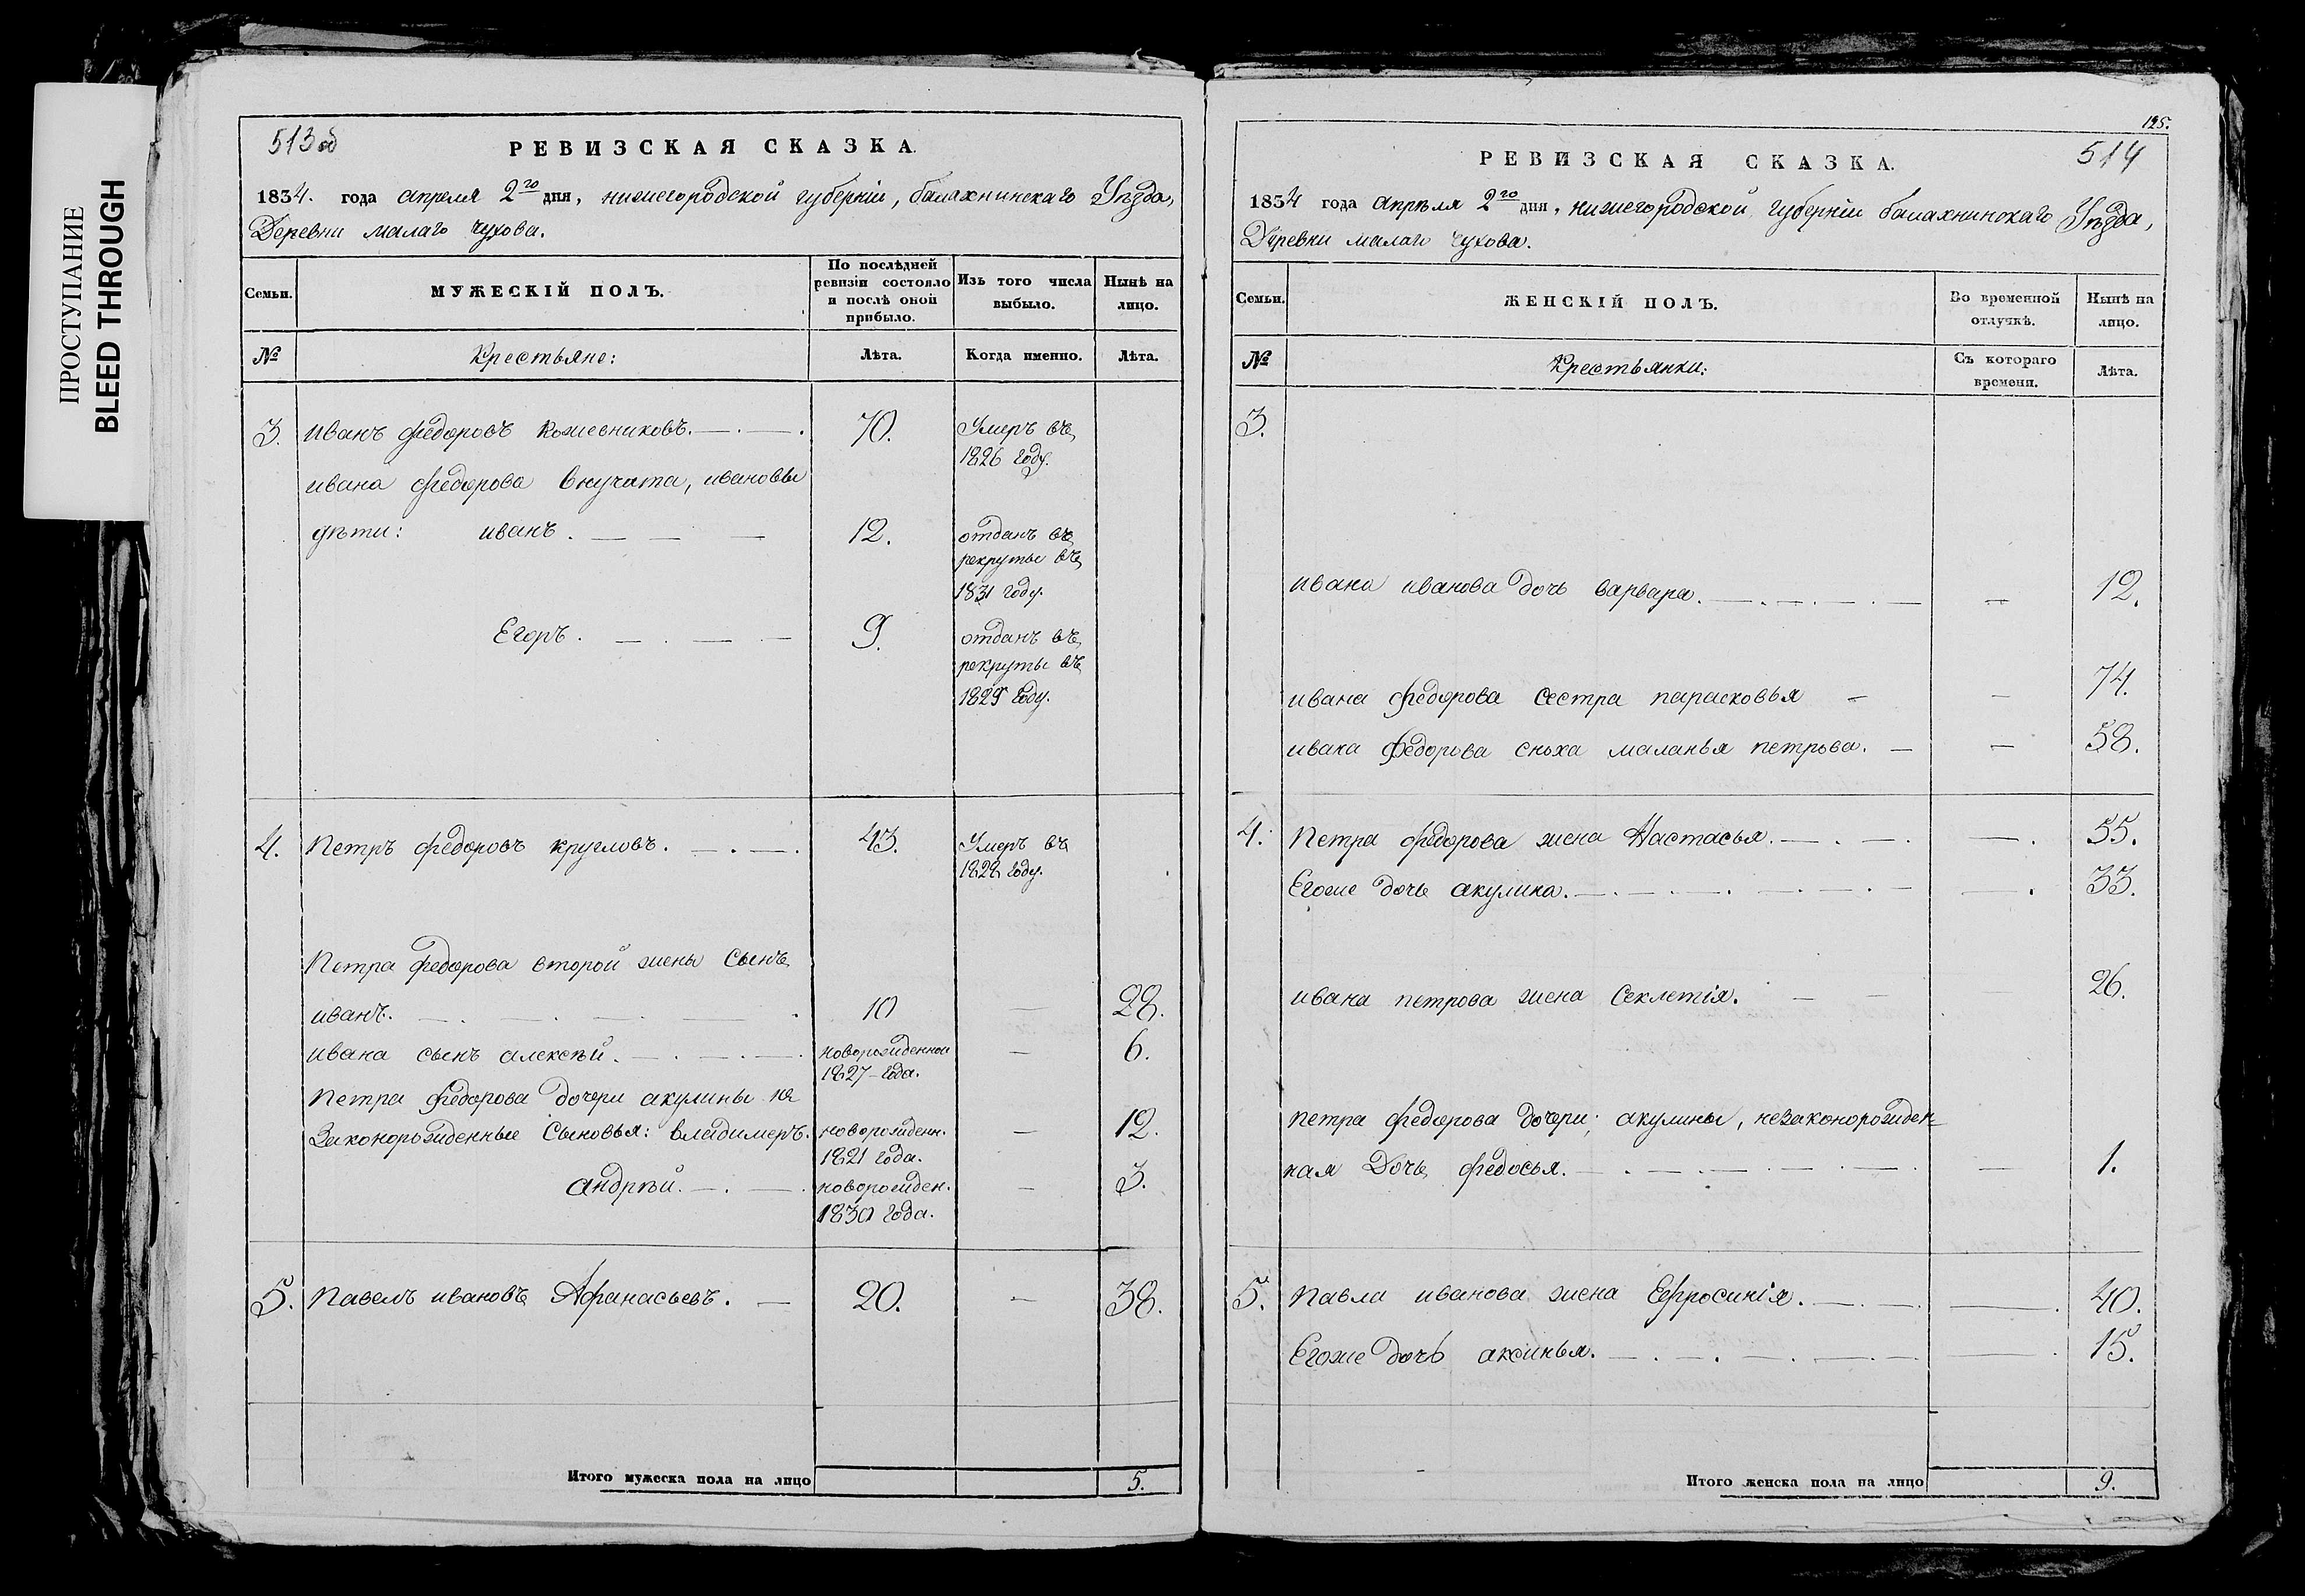 ПРОСТУПАНИЕ
BLEED THROUGH
513об
РЕВИЗСКАЯ СКАЗКА.
1834. года апреля 2го дня, нижегородской губерніи, балахнинскаго Уѣзда,
Деревни малаго чухова.
Семьи.
МУЖЕСКІЙ ПОЛЪ.
По послѣдней
ревизіи состояло
и послѣ оной
прибыло.
Изъ того числа
выбыло.
Нынѣ на
лицо.
№
Крестьяне:
Лѣта.
Когда именно.
Лѣта.
3. иванъ федоровъ кожевниковъ. 70. Умеръ въ
1826 году.
ивана федорова внучата, ивановы
дѣти: иванъ. 12. отданъ въ
рекруты въ
1831 году.
Егоръ. 9. отданъ въ
рекруты въ
1829 году.
4. Петръ федоровъ кругловъ. 43. Умеръ въ
1828 году.
Петра федорова второй жены сынъ
иванъ. 10 — 28.
ивана сынъ алексѣй. новорожденной — 6.
1827 года.
Петра федорова дочери акулины не
законорожденные сыновья: владимеръ. новорожден. — 12.
1821 года.
андрѣй. новорожден. — 3.
1830 года.
5. Павелъ ивановъ Афанасьевъ. 20. — 38.
Итого мужеска пола на лицо 5.
125.
514
РЕВИЗСКАЯ СКАЗКА.
1834 года апрѣля 2го дня, нижегородской губерніи балахнинскаго Уѣзда,
Деревни малаго чухова.
Семьи.
ЖЕНСКІЙ ПОЛЪ.
Во временной
отлучкѣ.
Нынѣ на
лицо.
№
Крестьянки:
Съ котораго
времени.
Лѣта.
3.
ивана иванова дочь варвара. — 12.
ивана федорова сестра парасковья — 74.
ивана федорова сноха маланья петрова. — 58.
4. Петра федорова жена Настасья. — 55.
Егоже дочь акулина. — 33.
ивана петрова жена Секлетія. 26.
петра федорова дочери; акулины, незаконорожден-
ная Дочь федосья. — 1.
5. Павла иванова жена Ефросинія. — 40.
Егоже дочь аксинья. — 15.
Итого женска пола на лицо 9.